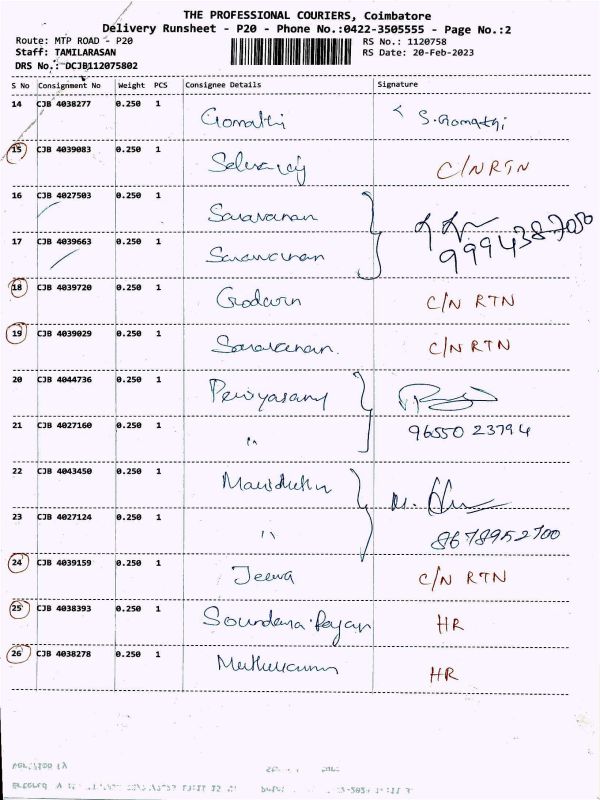 THE PROFESSIONAL COURIERS, Coimbatore
Delivery Runsheet - P20 - Phone No.:0422-3505555 - Page No.:2
Route: MTP ROAD - P20 RS No.: 1120758
Staff: TAMILARASAN RS Date: 20-Feb-2023
DRS No.: DCJB112075802
S No Consignment No Weight PCS Consignee Details Signature
14 CJB 4038277 0.250 1 Gomathi S. Gomathi
15 CJB 4039083 0.250 1 Selvaraj C/N RTN
16 CJB 4027503 0.250 1 Saravanan
9994387050
17 CJB 4039663 0.250 1 Saravanan
18 CJB 4039720 0.250 1 Godwin C/N RTN
19 CJB 4039029 0.250 1 Saravanan. C/N RTN
20 CJB 4044736 0.250 1 Periyasamy
21 CJB 4027160 0.250 1 " 96550 23794
22 CJB 4043450 0.250 1
23 CJB 4027124 0.250 1 " 8678952700
24 CJB 4039159 0.250 1 Jeeva C/N RTN
25 CJB 4038393 0.250 1 Soundara Rajan HR
26 CJB 4038278 0.250 1 HR